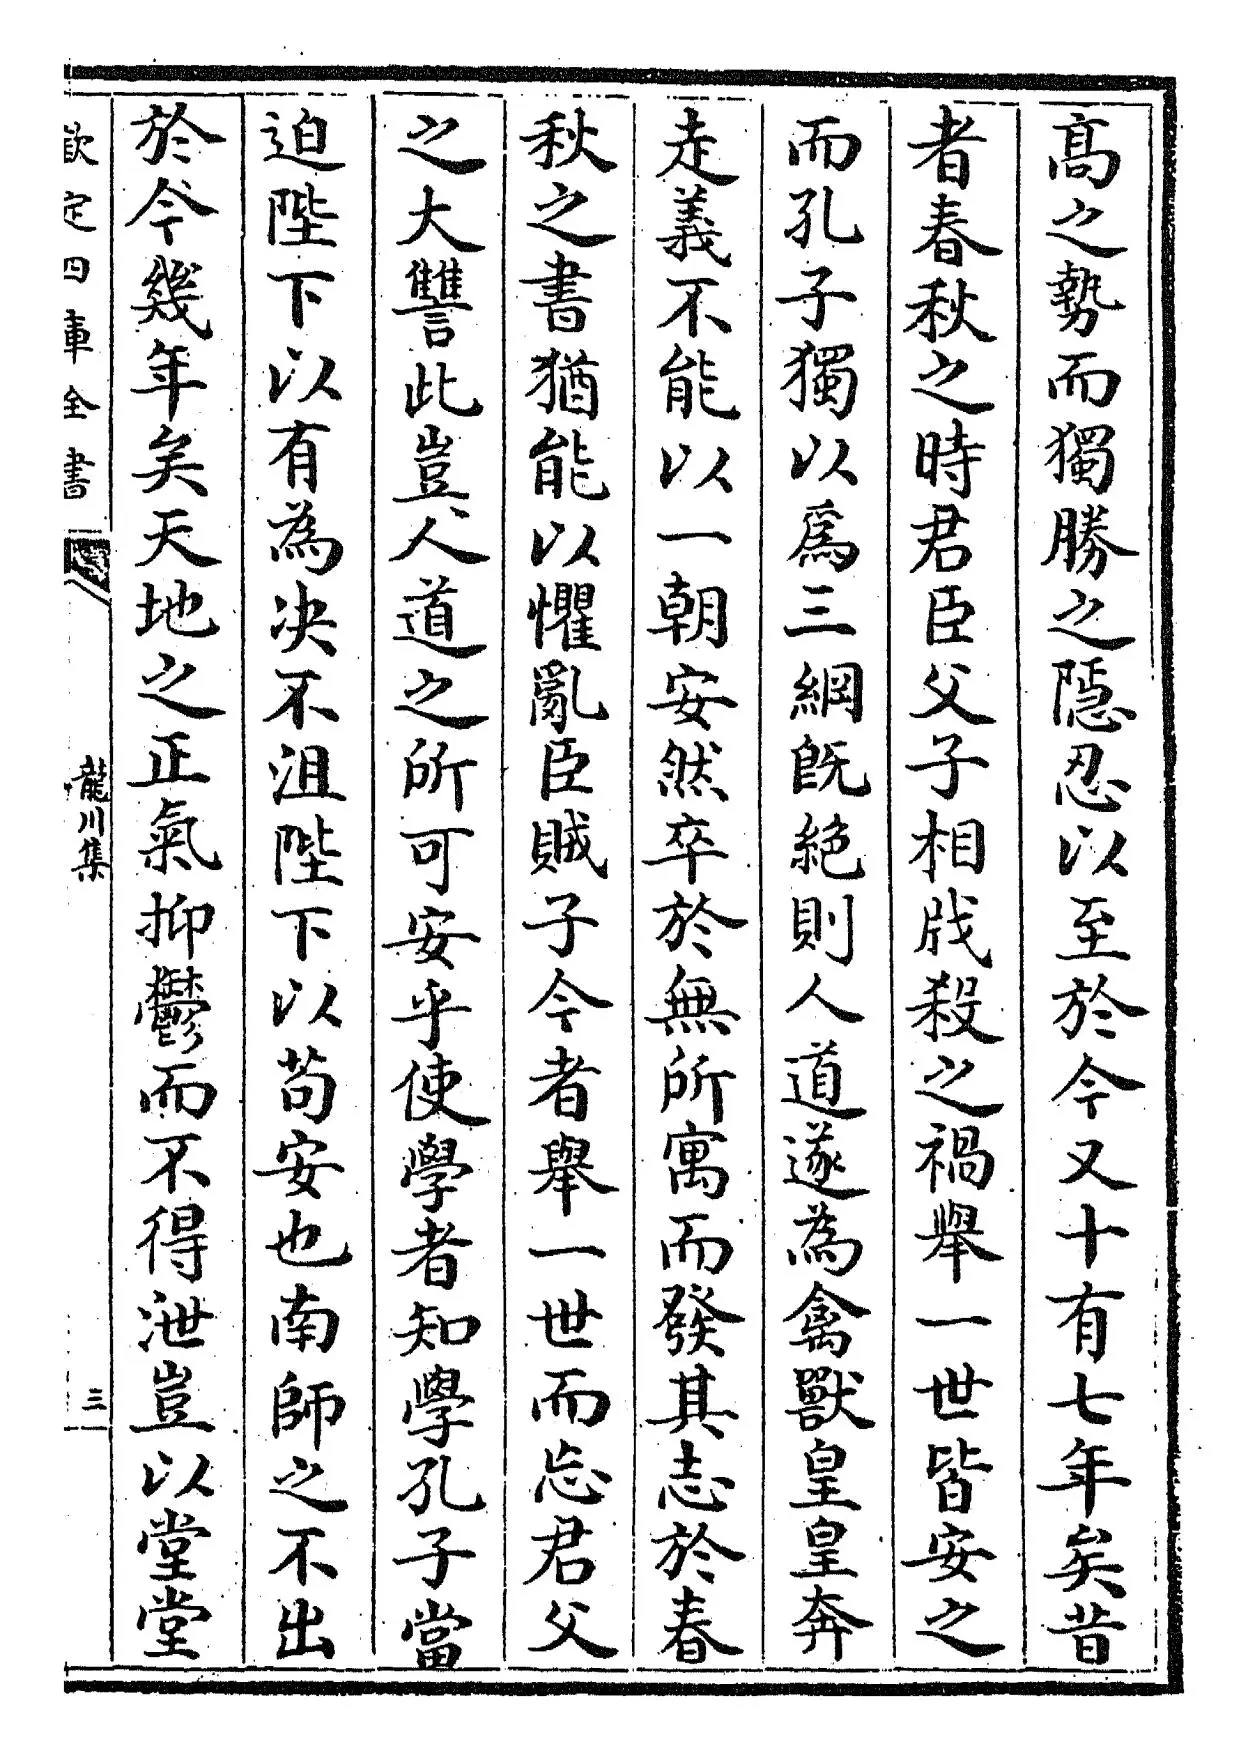 高之勢而獨勝之隱忍以至於今又十有七年矣昔
者春秋之時君臣父子相戕殺之禍舉一世皆安之
而孔子獨以爲三綱旣絶則人道遂為禽獸皇皇奔
走義不能以一朝安然卒於無所寓而發其志於春
秋之書猶能以懼亂臣賊子今者舉一世而忘君父
之大讐此豈人道之所可安乎使學者知學孔子當
迫陛下以有為决不沮陛下以苟安也南師之不出
於今幾年矣天地之正氣抑鬱而不得泄豈以堂堂
欽定四庫全書
龍川集
三